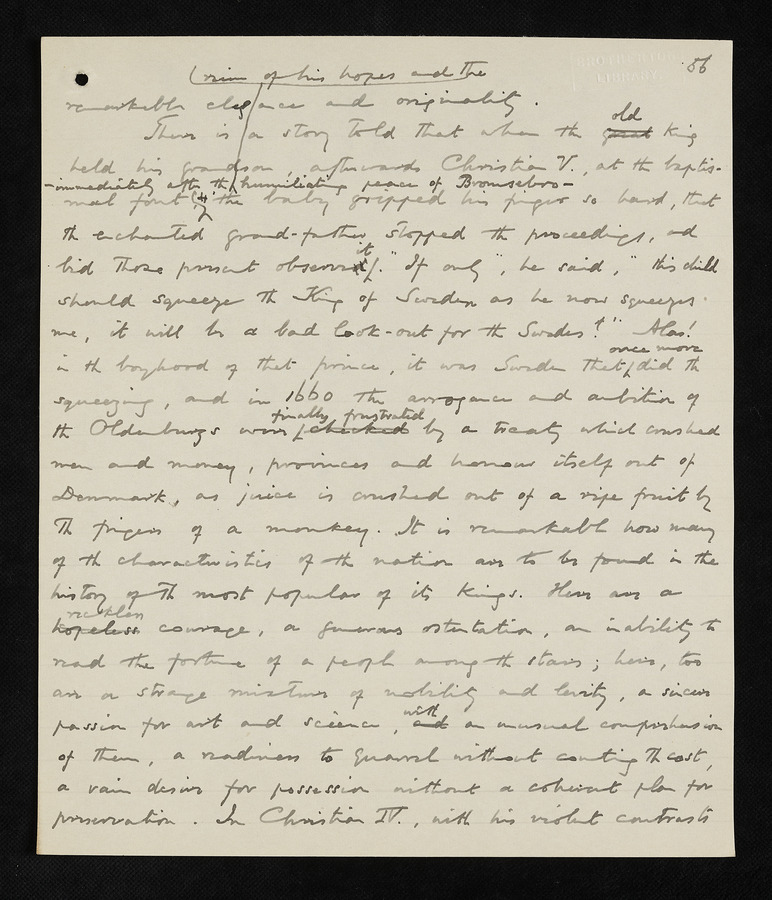 (ruin of his hopes and the
56
BROTHERTON
LIBRARY
remarkable elegance and originality.
old
There is a story told that when the great King
held his grandson, afterwards Christian V., at the baptis-
-immediately after the humiliating peace of Bromsebro-
mal font, the baby gripped his finger so hard, that
the enchanted grand-father stopped the proceedings, and
it
bid those present observe. "If only", he said, "this child
should squeeze the King of Sweden as he now squeezes
me, it will be a bad look-out for the Swedes!" Alas!
once more
in the boyhood of that prince, it was Sweden that did the
squeezing, and in 1660 the arrogance and ambition of
finally frustrated
the Oldenburgs were checked by a treaty which crushed
men and money, provinces and honour itself out of
Denmark, as juice is crushed out of a ripe fruit by
the fingers of a monkey. It is remarkable how many
of the characteristics of the nation are to be found in the
history of the most popular of its Kings. Here are a
reckless
hopeless courage, a generous ostentation, an inability to
read the fortune of a people among the stars; here, too
are a strange mixture of nobility and levity, a sincere
with
passion for art and science, and an unusual comprehension
of them, a readiness to quarrel without counting the cost,
a vain desire for possession without a coherent plan for
preservation. In Christian IV., with his violent contrasts